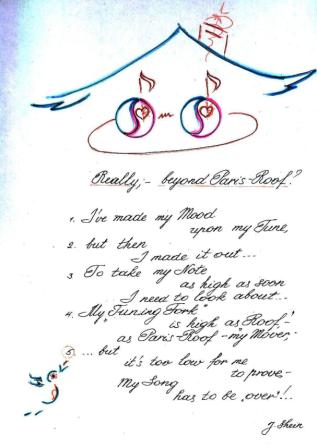 Really;- beyond Paris-Roof?
1. I've made my Mood
upon my Tune,
2. but then
I made it out...
3 To take my Note
as high as soon
I need to look about...
4. My "Tuning Fork"
is high as Roof,-
as Paris-Roof -my Mover,-
5. ... but
it's too low for me
to prove-
My Song
has to be „over"!...
J. Shein